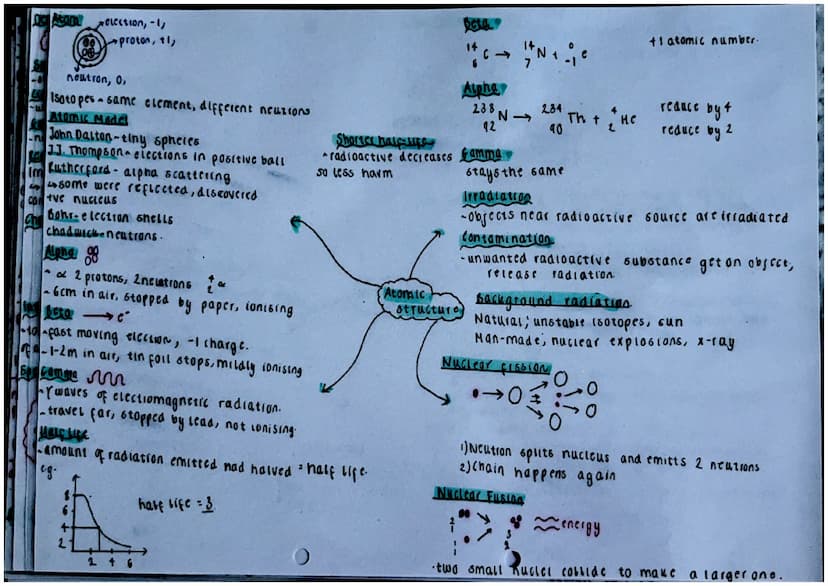 Atom
electron, -1,
proton, +1,
neutron, 0,
Isotopes - same element, different neutrons
Atomic Model
John Dalton - tiny spheres
J.J. Thompson - electrons in positive ball
Rutherford - alpha scattering
↳ some were reflected, discovered
+ve nucleus
Bohr - electron shells
chadwick - neutrons.
Alpha
- α 2 protons, 2neutrons 4 2 α
- 6cm in air, stopped by paper, ionising
Beta → e⁻
- fast moving electron, -1 charge.
- 1-2m in air, tin foil stops, mildly ionising
Gamma
- γ waves of electromagnetic radiation.
- travel far, stopped by lead, not ionising.
Half life
- amount of radiation emitted had halved = half life.
e.g.
half life = 3
8
4
2
2 4 6
Shorter half-life
- radioactive decreases
so less harm
Atomic
structure
Beta
14 6 C → 14 7 N + 0 -1 e +1 atomic number.
Alpha
238 92 N → 234 90 Th + 4 2 He reduce by 4
reduce by 2
Gamma
stays the same
Irradiation
- objects near radioactive source are irradiated
Contamination
- unwanted radioactive substance get on object,
release radiation
Background radiation
Natural; unstable isotopes, sun
Man-made; nuclear explosions, x-ray
Nuclear fission
1) Neutron splits nucleus and emitts 2 neutrons
2) Chain happens again
Nuclear Fusion
2 1
1 1
3 2
energy
- two small nuclei collide to make a larger one.